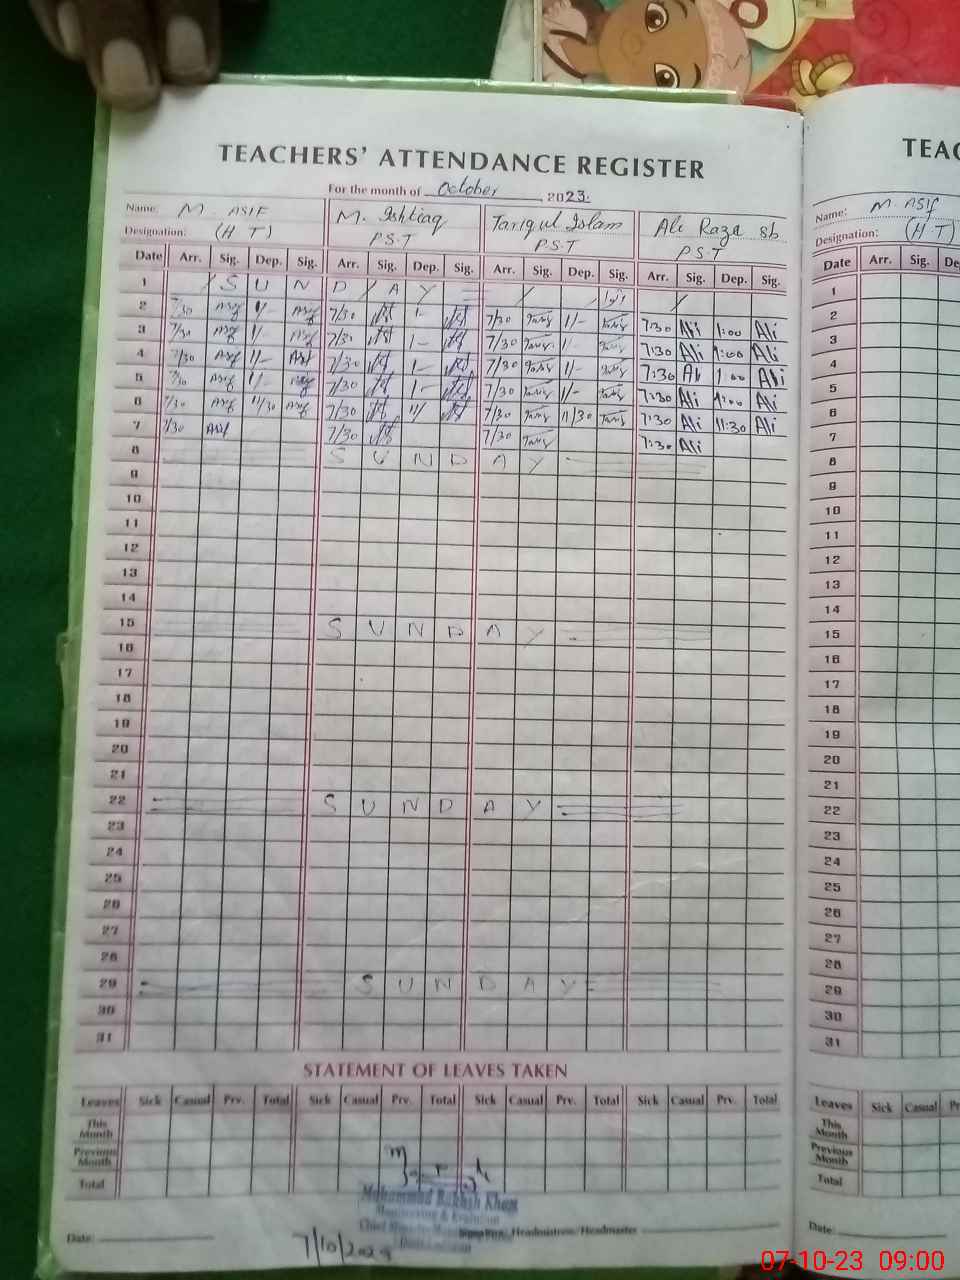 TEACHERS' ATTENDANCE REGISTER
For the month of October, 2023.
Name: M. ASIF M. Ishtiaq Tariqul Islam Ali Raza sb
Designation: (H T) P.S.T P.S.T P.S.T
Date Arr. Sig. Dep. Sig. Arr. Sig. Dep. Sig. Arr. Sig. Dep. Sig. Arr. Sig. Dep. Sig.
1 S U N D A Y
2 7/30 Asif 1/- Asif 7/30 1- 7/30 Tariq 1/- Tariq 7:30 Ali 1:00 Ali
3 7/30 Asif 1/- Asif 7/30 1- 7/30 Tariq 1/- Tariq 7:30 Ali 1:00 Ali
4 7/30 Asif 1/- Asif 7/30 1- 7/30 Tariq 1/- Tariq 7:30 Ali 1:00 Ali
5 7/30 Asif 1/- Asif 7/30 1- 7/30 Tariq 1/- Tariq 7:30 Ali 1:00 Ali
6 7/30 Asif 11/30 Asif 7/30 11/ 7/30 Tariq 11/30 Tariq 7:30 Ali 11:30 Ali
7 7/30 Asif 7/30 7/30 Tariq 7:30 Ali
8 S U N D A Y
9
10
11
12
13
14
15 S U N D A Y
16
17
18
19
20
21
22 S U N D A Y
23
24
25
26
27
28
29 S U N D A Y
30
31
STATEMENT OF LEAVES TAKEN
Leaves Sick Casual Prv. Total Sick Casual Prv. Total Sick Casual Prv. Total Sick Casual Prv. Total
This Month
Previous Month
Total
Muhammad Bakhsh Khan
Monitoring & Evaluation
Date: Headmistress/Headmaster
7/10/2023
TEAC
Name: M. ASIF
Designation: (H T)
Date Arr. Sig. De
1
2
3
4
5
6
7
8
9
10
11
12
13
14
15
16
17
18
19
20
21
22
23
24
25
26
27
28
29
30
31
Leaves Sick Casual P
This Month
Previous Month
Total
Date:
07-10-23 09:00